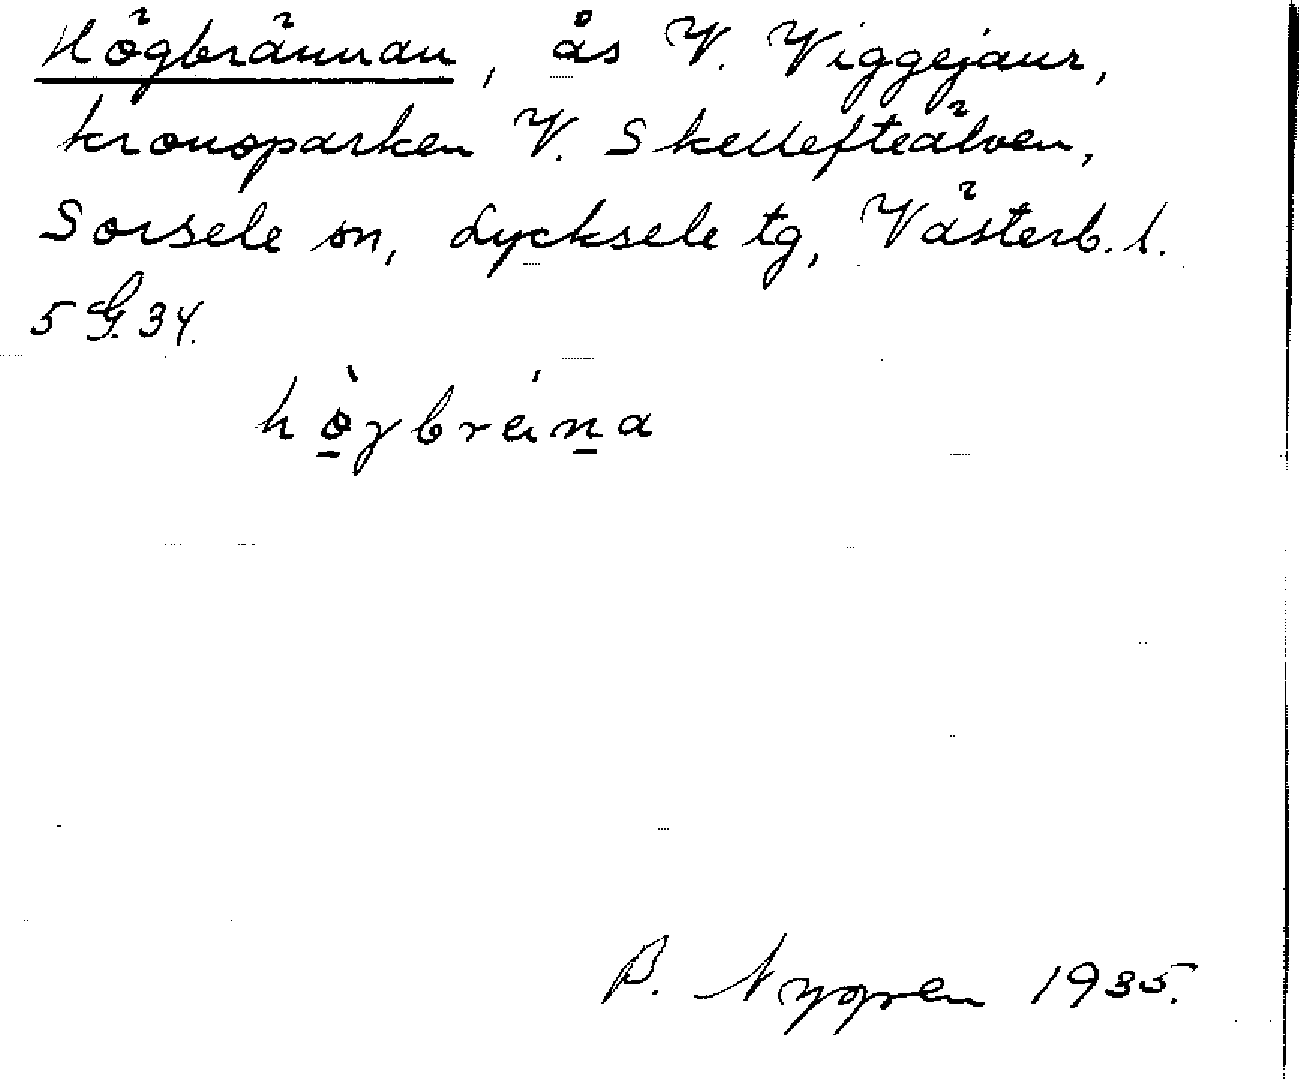 Högbrännan, ås V. Viggejaur,
kronoparken V. Skellefteälven,
Sorsele sn, Lycksele tg, Västerb. l.
5 G. 34.
hö̀gbrä́na
B. Nygren 1935.